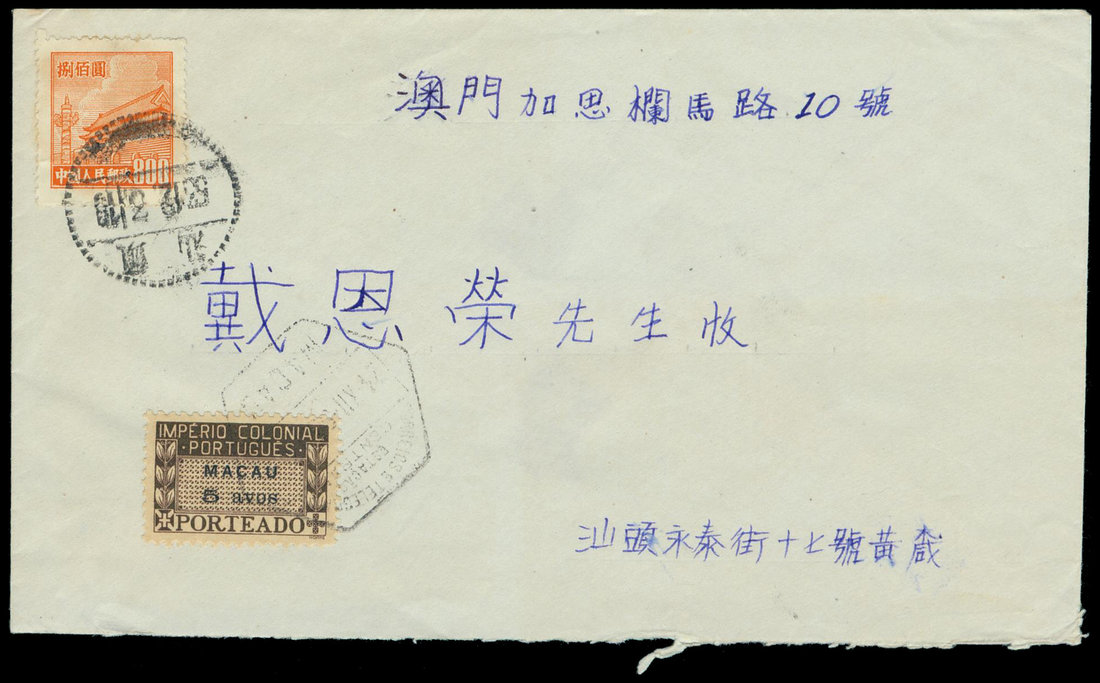 捌佰圓
中國人民郵政 800
澳門加思欄馬路10號
戴恩榮先生收
汕頭
IMPÉRIO COLONIAL
·PORTUGUÊS·
MACAU
5 avos
PORTEADO
汕頭永泰街十七號黃